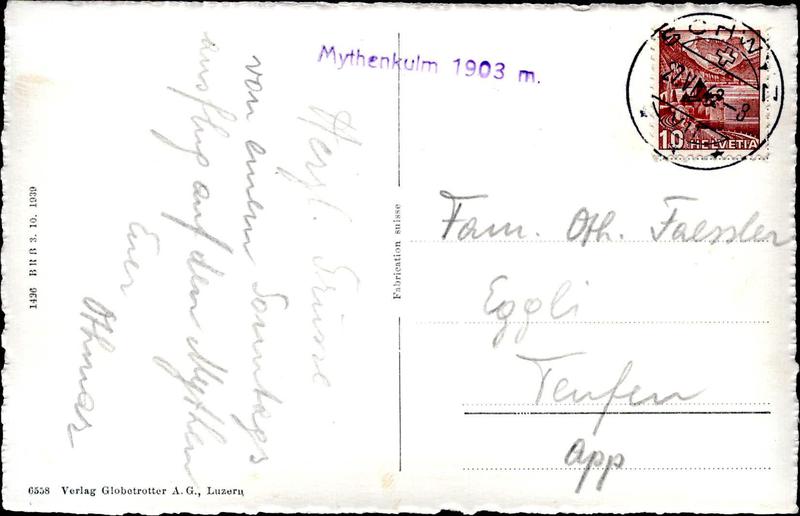 Mythenkulm 1903 m.
SCHWYZ
HELVETIA
10
Herzl. Grüsse
von einem Sonntags
ausflug auf den Mythen
Euer
Othmar
Fam. Oth. Faessler
Eggli
Teufen
App
Fabrication suisse
1496 BRB 3. 10. 1939
6558 Verlag Globetrotter A. G., Luzern